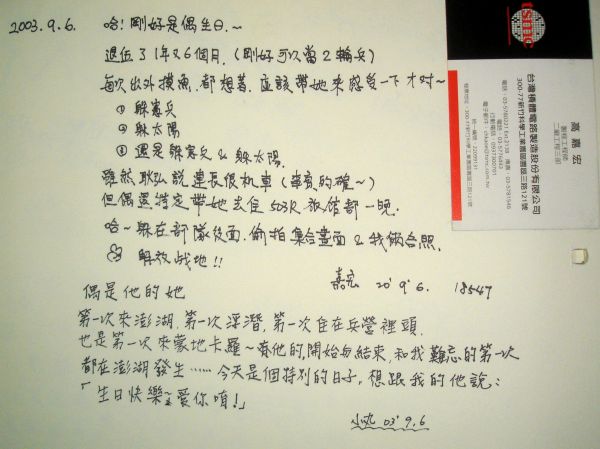 2003.9.6. 哈!剛好是偶生日.~
退伍了1年又6個月.(剛好可以當2輪兵)
每次出外摸魚.都想著.應該帶她來感受一下才对~
① 躲憲兵
② 躲太陽
③ 還是躲憲兵 & 躲太陽.
雖然耿弘說連長很机車(事實的確~)
但偶還特定帶她去住503R旅館部一晚.
哈~躲在部隊後面.偷拍集合畫面 & 我倆合照.
解放战地!!
嘉宏 20'9'6. 18547
偶是他的她
第一次來澎湖.第一次浮潛,第一次住在兵營裡頭.
也是第一次來蒙地卡羅~有他的,開始与結束,和我難忘的第一次
都在澎湖發生……今天是個特別的日子,想跟我的他說:
「生日快樂~愛你唷!」
小丸 03'9.6
tsmc
台灣積體電路製造股份有限公司
300-77新竹科學工業園區園區三路121號
高嘉宏
製程工程師
二廠工程三部